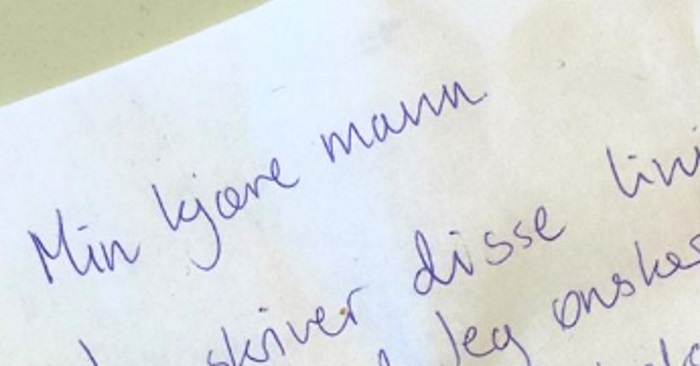 Min kjære mann
skriver disse
Jeg ønsker